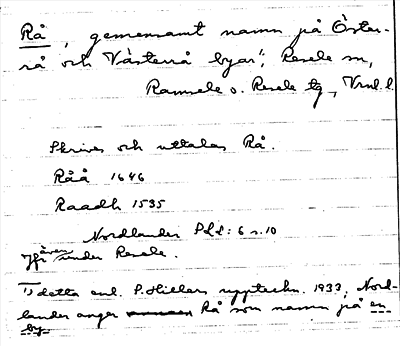 Rå, gemensamt namn på Öster-
rå och Västerrå byar¹⁾, Resele sn,
Ramsele o. Resele tg, Vrnl. l.
Skrives och uttalas Rå.
Råå 1646
Raadh 1535
Nordlander PLl: 6 s. 10
Jfr även under Resele.
¹⁾ detta enl. P. Hillers uppteckn. 1933; Nord-
lander anger Rå som namn på en
by.